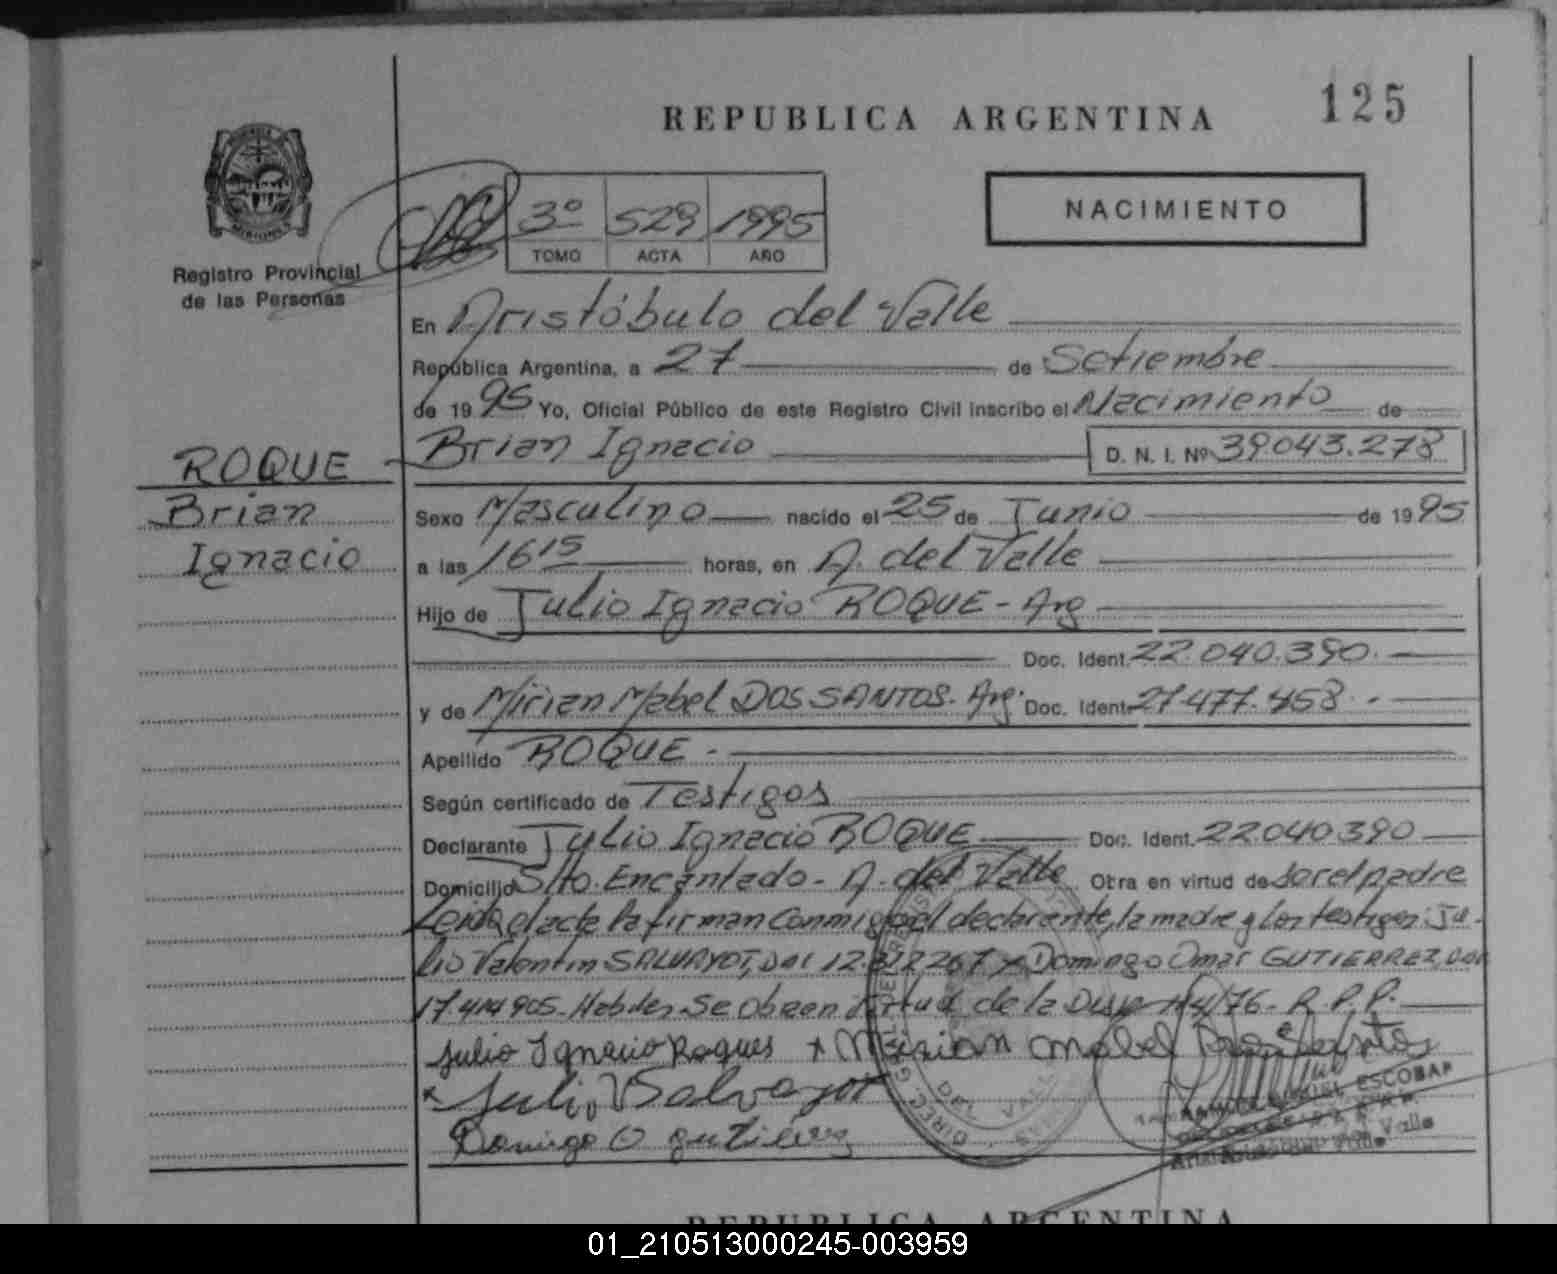 125
REPUBLICA ARGENTINA
MISIONES
Registro Provincial
de las Personas
3º 529 1995
TOMO ACTA AÑO
NACIMIENTO
En Aristóbulo del Valle
República Argentina, a 27 de Setiembre
de 1995 Yo, Oficial Público de este Registro Civil inscribo el Nacimiento de
ROQUE
Brian
Ignacio
Brian Ignacio D. N. I. Nº 39.043.278
Sexo Masculino nacido el 25 de Junio de 1995
a las 16 15 horas, en A. del Valle
Hijo de Julio Ignacio ROQUE - Arg
Doc. Ident. 22.040.390.
y de Mirian Mabel DOS SANTOS. Arg. Doc. Ident. 21.477.458.
Apellido ROQUE.
Según certificado de Testigos
Declarante Julio Ignacio ROQUE Doc. Ident. 22.040.390
Domicilio Sto. Encantado - A. del Valle Obra en virtud de ser el padre
Leida el acta la firman conmigo el declarante, la madre y los testigos: Ju-
lio Valentin SALVAYOT, DNI 12.  y Domingo Omar GUTIERREZ, DNI
17.414.905. Se obra en virtud de la Disp. Nº 4/76 - R.P.P.
Julio Ignacio Roques x Mirian Mabel Dos Santos
x Julio V Salvayot
Domingo O gutierrez
DIREC. DEL VALLE
ESCOBAR
Valle
REPUBLICA ARGENTINA
01_210513000245-003959